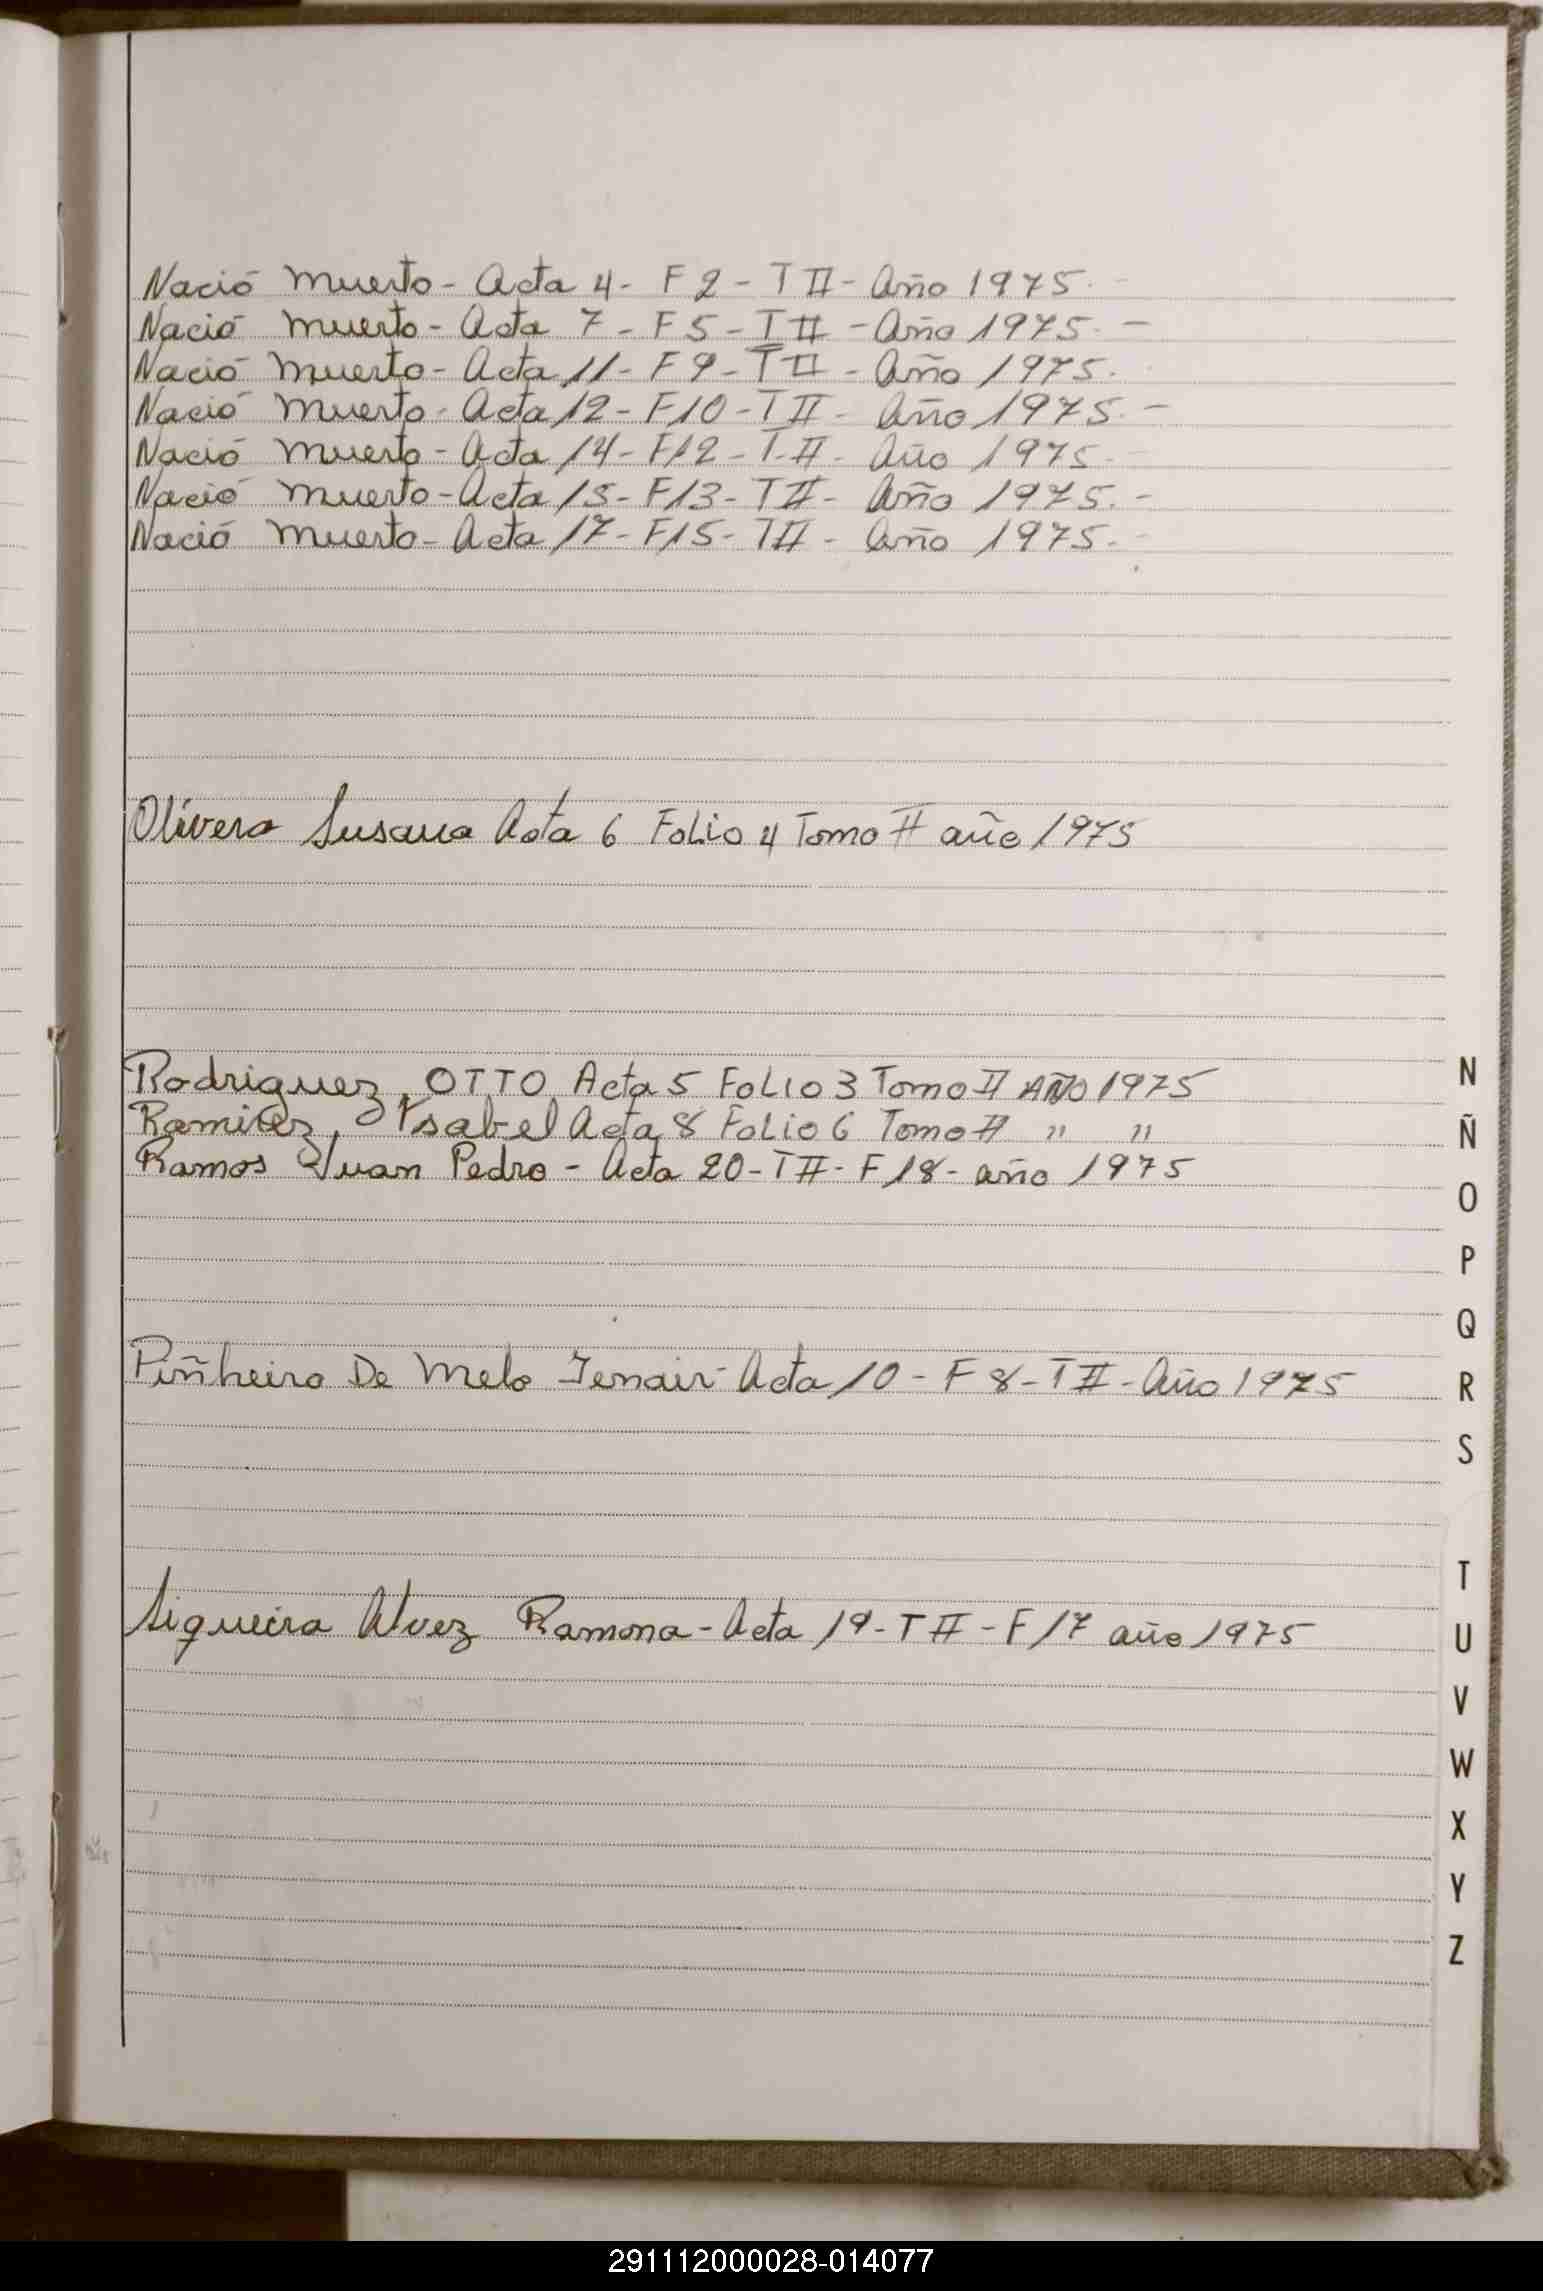 Nació Muerto - Acta 4 - F 2 - T II - Año 1975. -
Nació Muerto - Acta 7 - F 5 - T II - Año 1975. -
Nació Muerto - Acta 11 - F 9 - T II - Año 1975.
Nació Muerto - Acta 12 - F 10 - T II - Año 1975. -
Nació Muerto - Acta 14 - F 12 - T II - Año 1975. -
Nació Muerto - Acta 15 - F 13 - T II - Año 1975. -
Nació Muerto - Acta 17 - F 15 - T II - Año 1975. -
Olivera Susana Acta 6 Folio 4 Tomo II año 1975
Rodriguez, OTTO Acta 5 Folio 3 Tomo II AÑO 1975
Ramirez, Ysabel Acta 8 Folio 6 Tomo II " "
Ramos Juan Pedro - Acta 20 - T II - F 18 - año 1975
Piñheiro De Melo Jenair - Acta 10 - F 8 - T II - Año 1975
Siqueira Alvez Ramona - Acta 19 - T II - F 17 año 1975
N
Ñ
O
P
Q
R
S
T
U
V
W
X
Y
Z
291112000028-014077